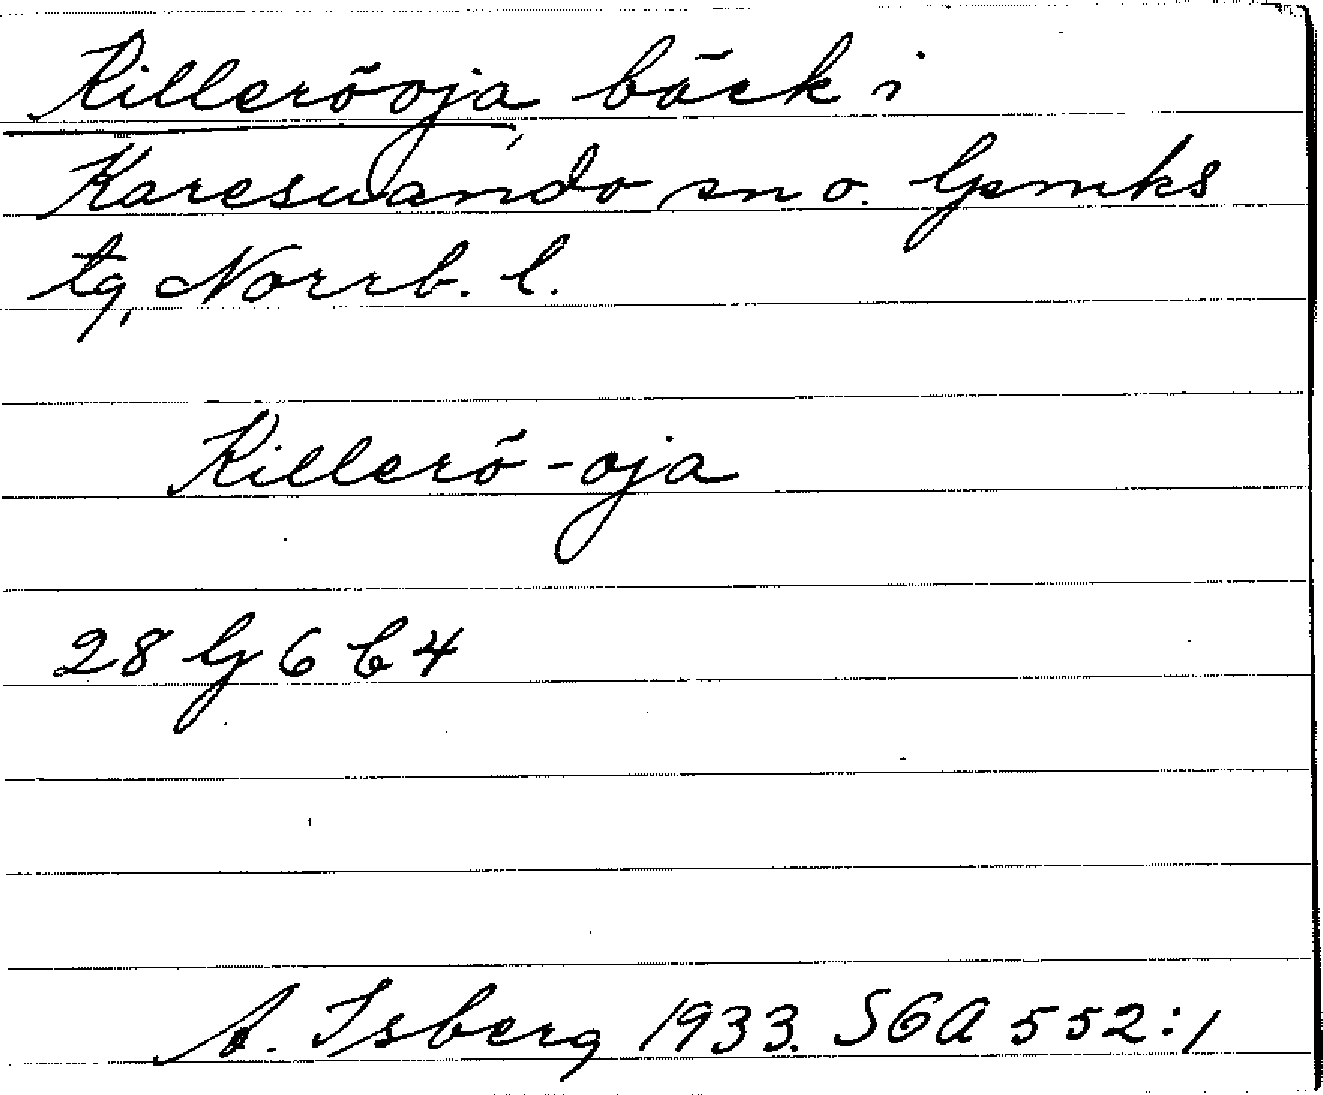 Killeröoja, bäck i
Karesuando sn o. lpmks
tg, Norrb. l.
Killerö-oja
28 G 6 b 4
A. Isberg 1933. SGA 552:1